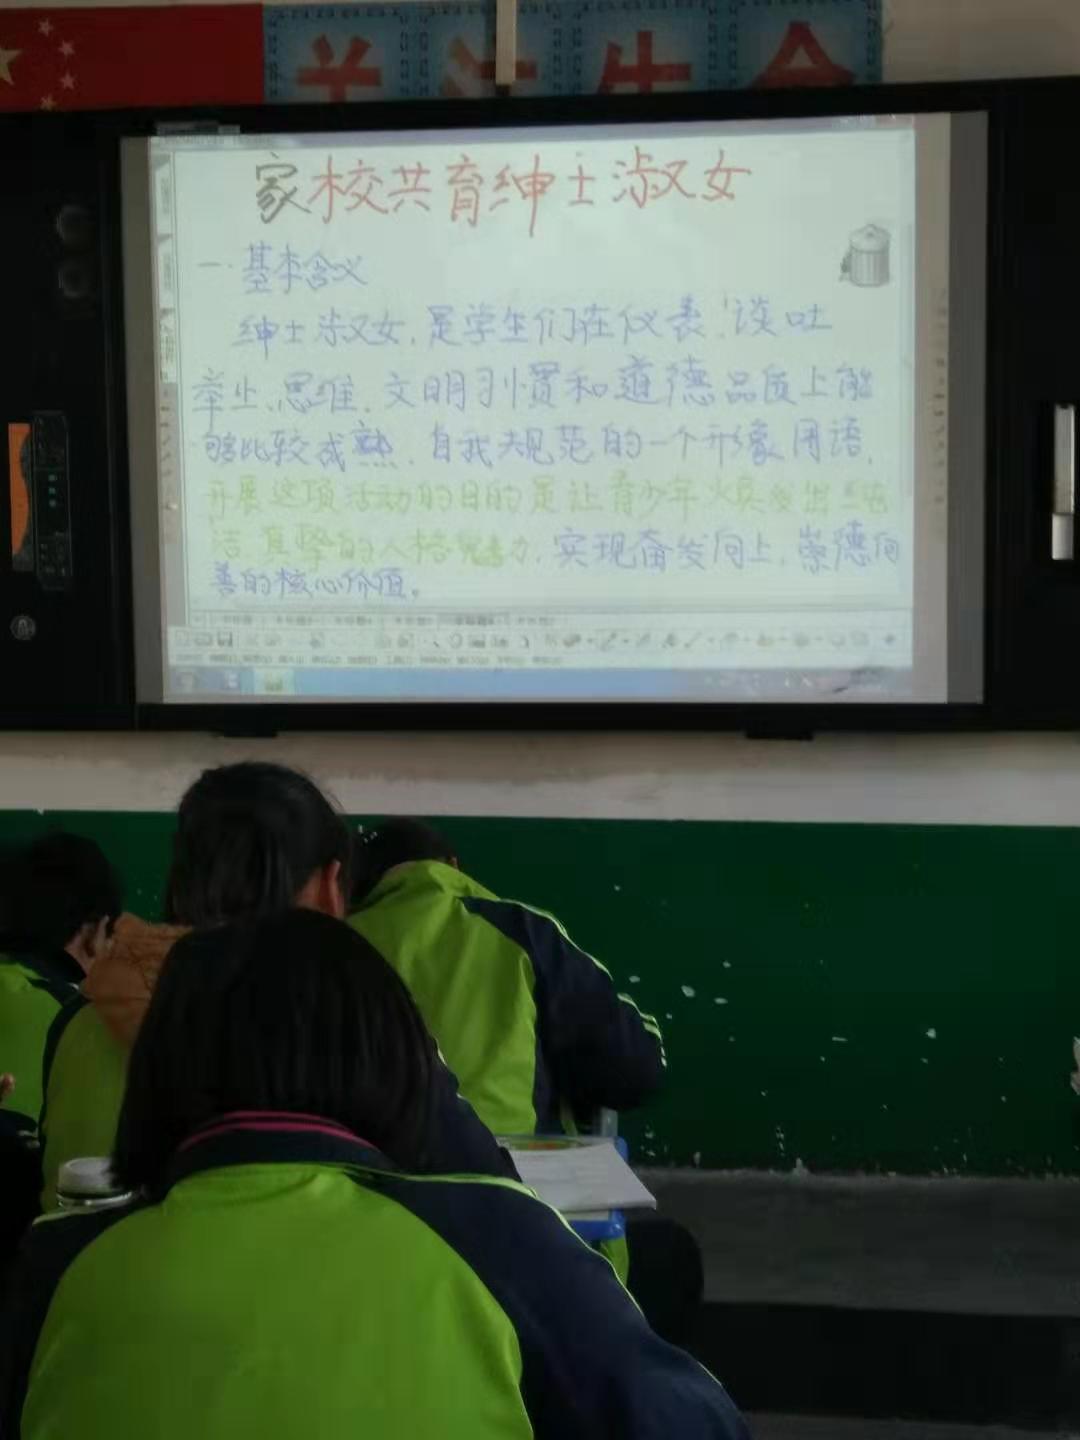 关注生命
家校共育绅士淑女
一.基本含义
绅士淑女,是学生们在仪表、谈吐
举止、思维、文明习惯和道德品质上能
够比较成熟、自我规范的一个形象用语,
开展这项活动的目的是让青少年焕发出
洁、真挚的人格魅力,实现奋发向上,崇德向
善的核心价值。